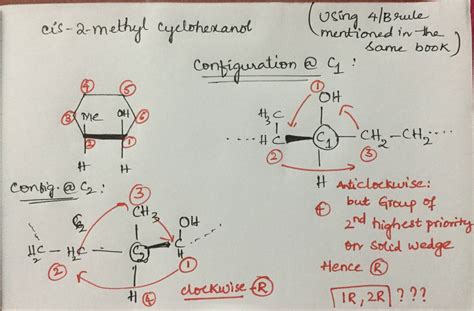 cis-2-methyl cyclohexanol
(Using 4/B rule
mentioned in the
same book)
Configuration @ C1 :
① OH
H3C
C
②
C1
CH2 - CH2
③
H
④
④ ⑤
③ Me OH ⑥
② ①
H H
Config. @ C2 :
③
CH3
OH
H2C - H2C
②
C2
C
H
①
H
④
clockwise - Ⓡ
Anticlockwise:
but Group of
2nd highest priority
on solid wedge
Hence Ⓡ
1R, 2R ? ? ?